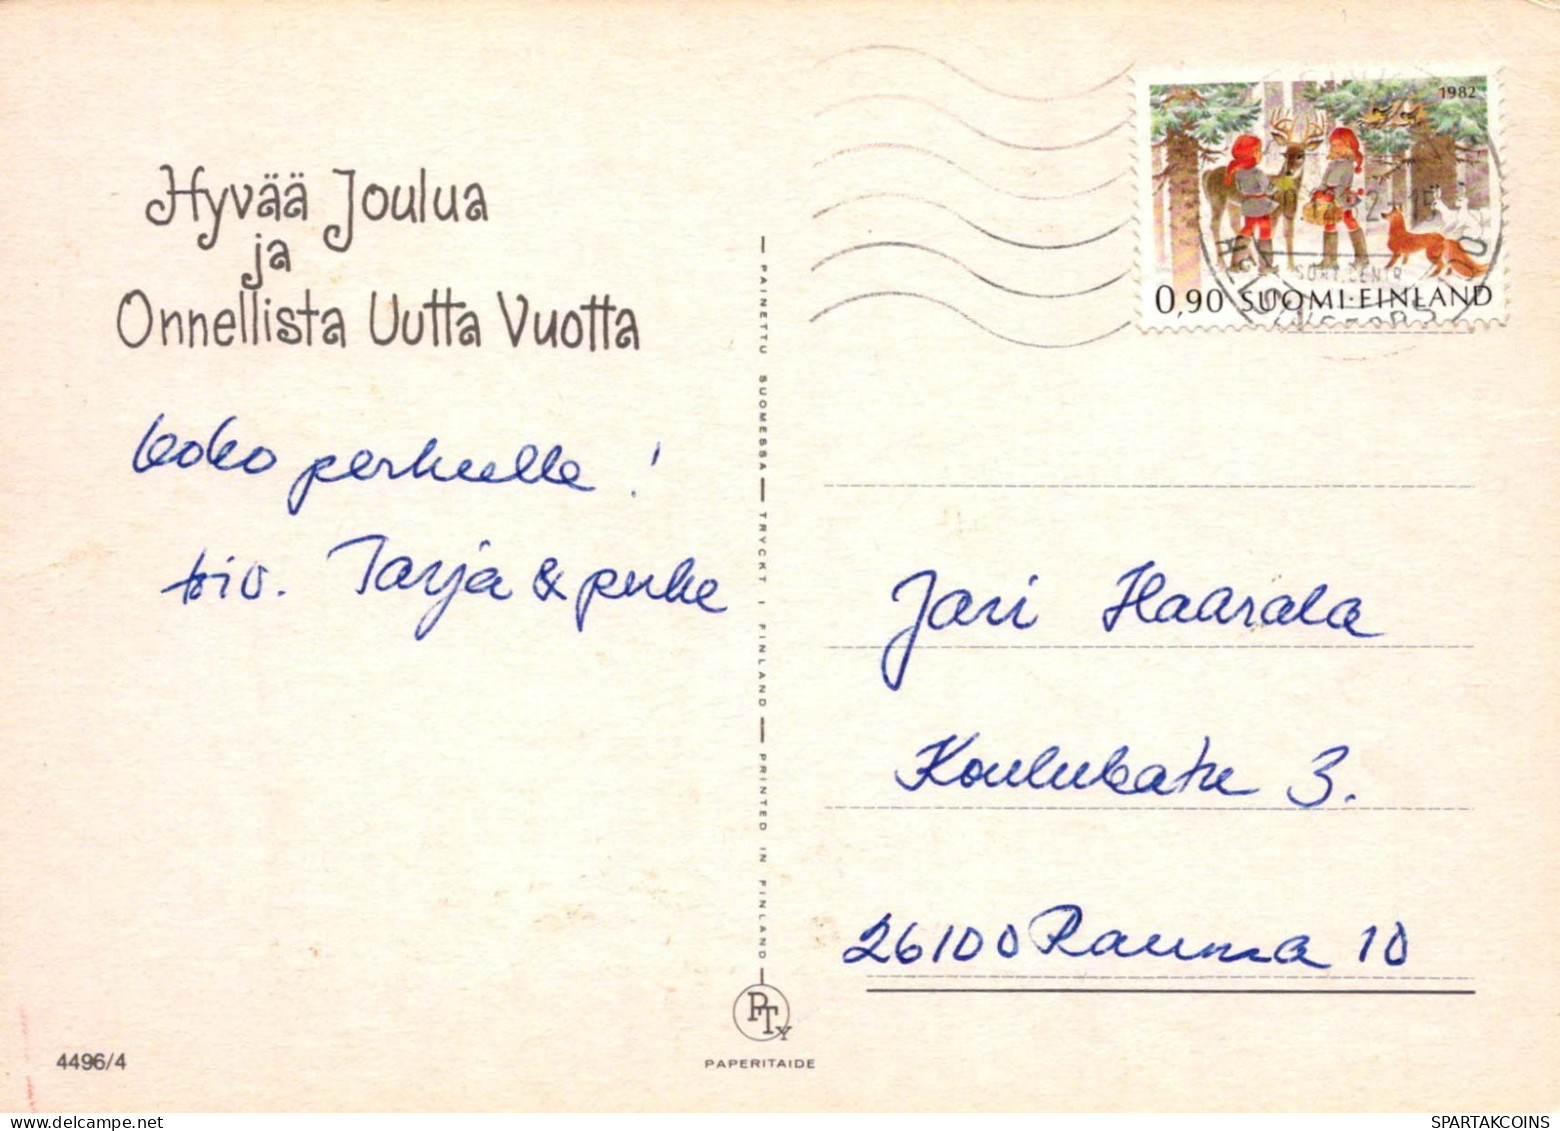 Hyvää Joulua
ja
Onnellista Uutta Vuotta
koko perheelle!
toiv. Tarja & perhe
4496/4
PAINETTU SUOMESSA — TRYCKT I FINLAND — PRINTED IN FINLAND
PTY
PAPERITAIDE
1982
0,90 SUOMI-FINLAND
Jari Haarala
Koulukatu 3.
26100 Rauma 10
SPARTAKCOINS